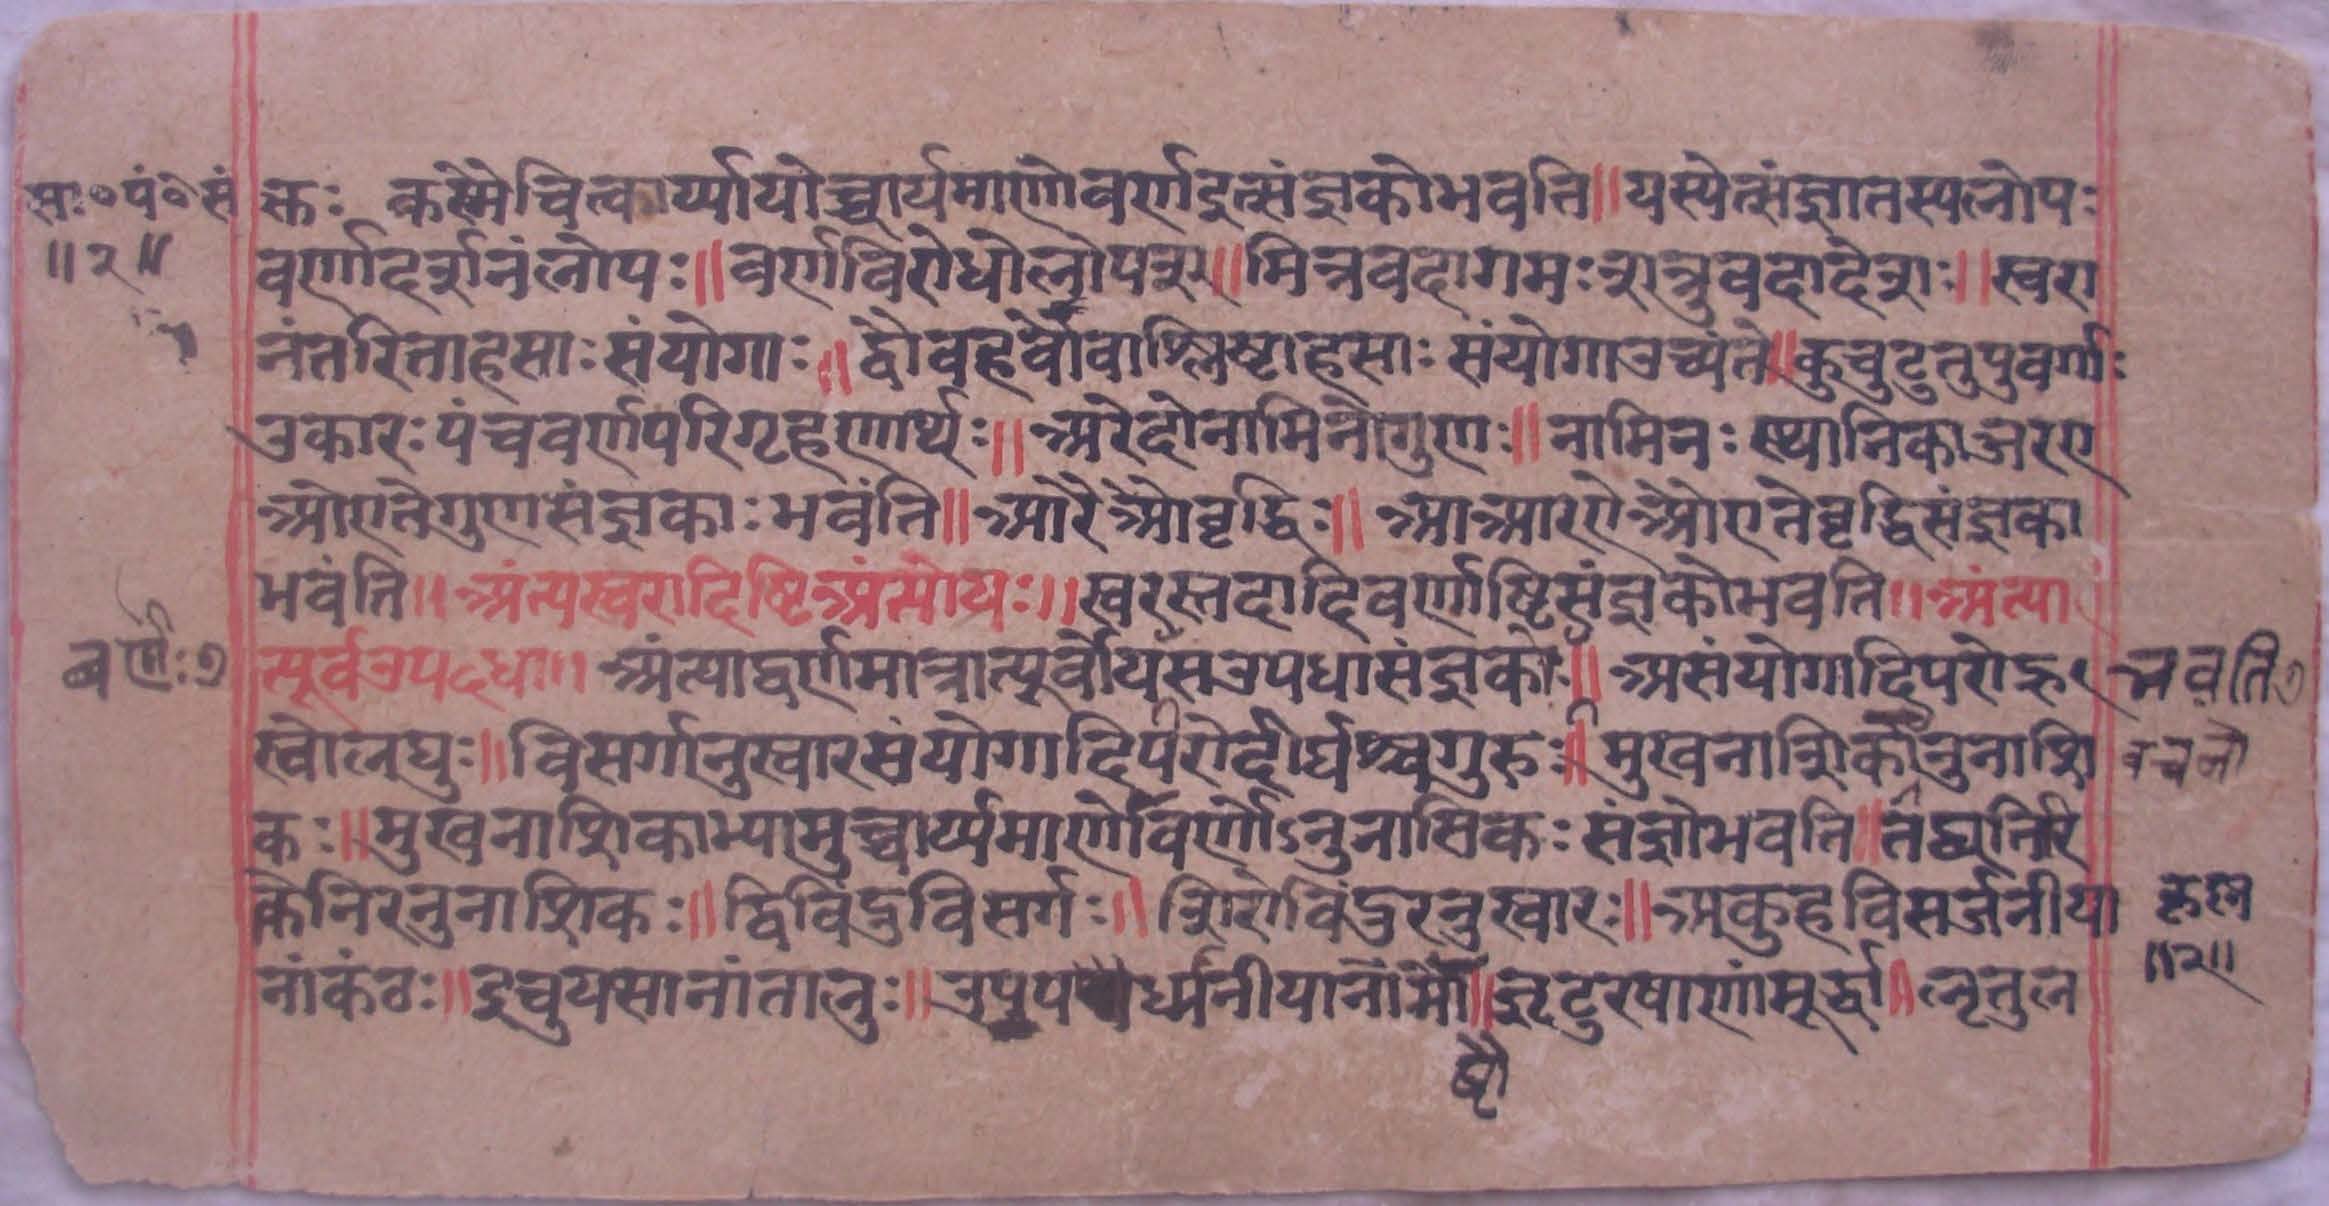 सा॰ पं॰ सं
॥२॥
क्तः कस्मैचित्कार्य्यायोच्चार्यमाणोवर्णइत्संज्ञकोभवति॥यस्येत्संज्ञातस्यलोपः
वर्णादर्शनंलोपः॥वर्णविरोधोलोपश्॥मित्रवदागमःशत्रुवदादेशः॥स्वरा
नंतरिताहसाःसंयोगाः॥द्वौवहवोवाश्लिष्टाहसाःसंयोगाउच्यंते॥कुचुटुतुपुवर्गाः
उकारःपंचवर्णपरिगृहणार्थः॥अरेदोनामिनोगुणः॥नामिनःस्थानिकाअरए
ओएतेगुणसंज्ञकाःभवंति॥आरैऔवृद्धिः॥आआरऐऔएतेवृद्धिसंज्ञका
भवंति॥अंत्यस्वरादिष्टिअंत्योयः॥स्वरस्तदादिवर्णाष्टिसंज्ञकोभवति॥अंत्या
वर्णः७
त्पूर्वउपदधा॥अंत्याद्वर्णमात्रात्पूर्वोयसउपधासंज्ञको॥असंयोगादिपरोह्र
भवति७
स्वोलघुः॥विसर्गानुस्वारसंयोगादिपरोदीर्घश्चगुरुः॥मुखनाशिकानुनाशि
वचनो
कः॥मुखनाशिकाभ्यामुच्चार्य्यमाणोवर्णोऽनुनासिकःसंज्ञोभवति॥
केनिरनुनाशिकः॥द्विविंदुविसर्गः॥शिरोविंदुरनुस्वारः॥अकुहविसर्जनीया
नांकंठः॥इचुयसानांतालुः॥उपुपध्मनीयानामो॥ऋटुरषाणांमूर्द्धा॥लृतुल
॥२॥
ष्ठौ